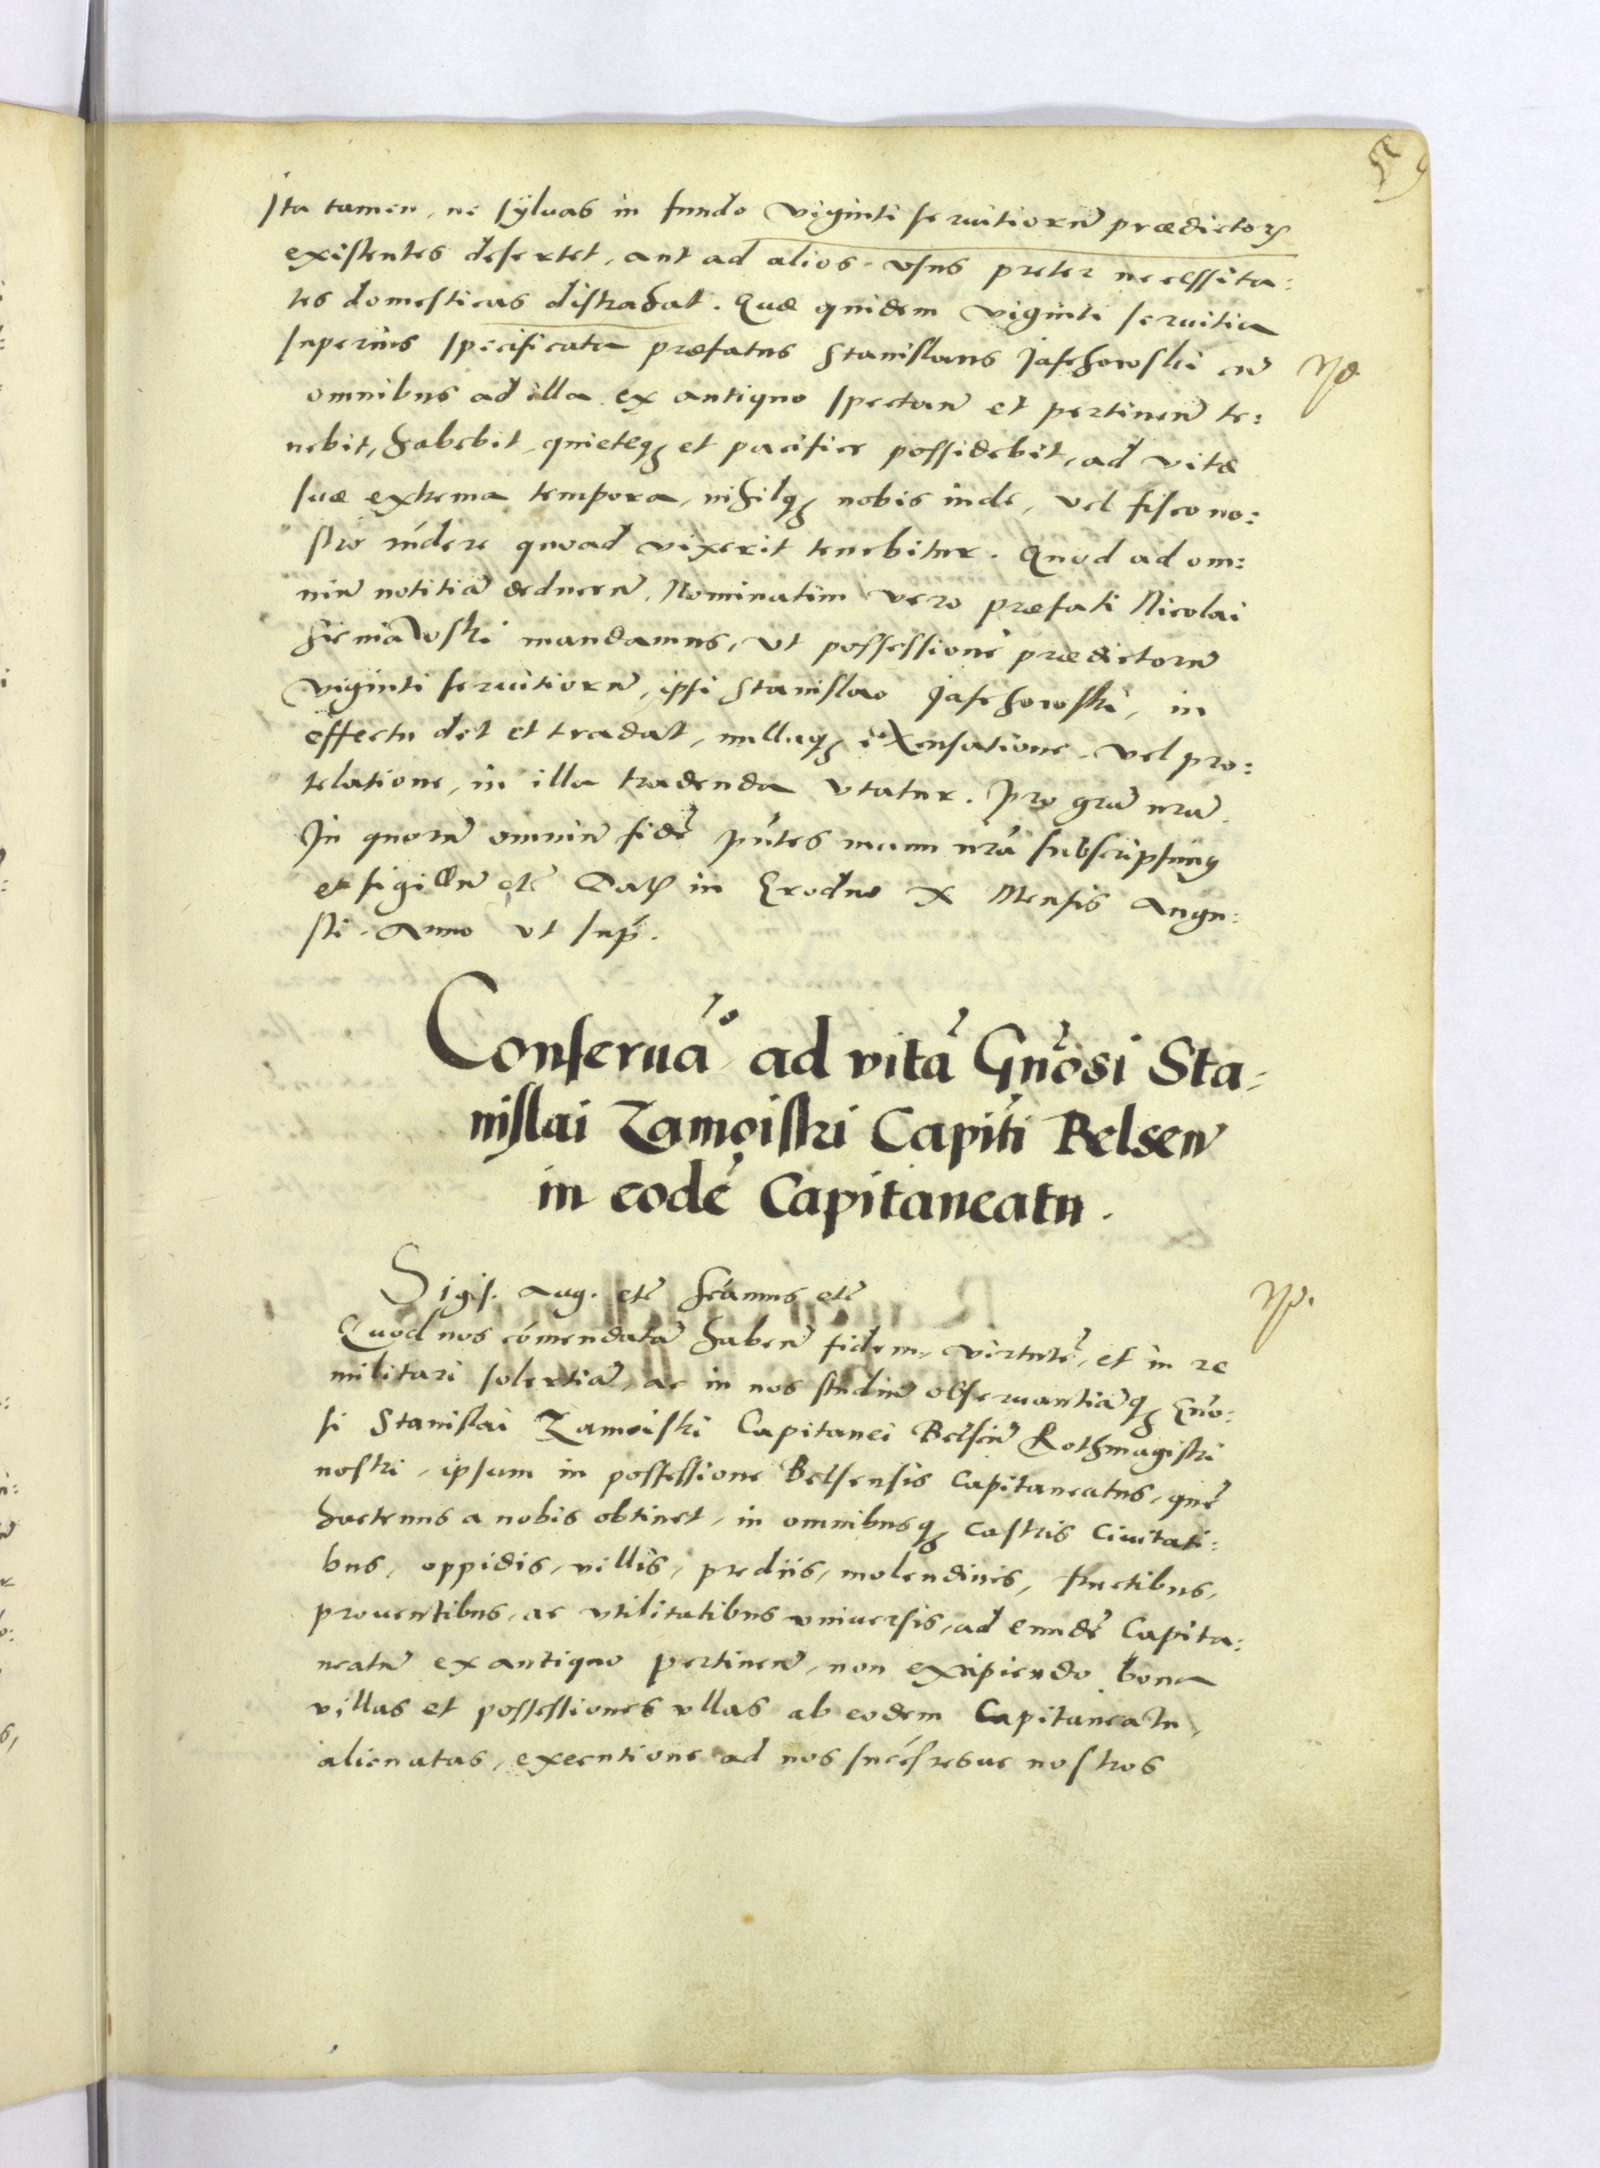 59
Ita tamen, ne sÿluas in fundo viginti seruitiorũ prædictoꝝ
existentes desertet, aut ad alios vsus preter necessita:
tes domesticas distrahat. Quæ quidem viginti seruitia
superius specificata præfatus Stanislaus Jasschowski cũ
omnibus ad illa ex antiquo spectañ et pertineñ te:
nebit, habebit, quieteqȝ et pacifice possidebit, ad vitæ
suæ extrema tempora, nihilqȝ nobis inde, vel fisco no:
stro quoad vixerit tenebitur. Quod ad om:
niũ notitiã deduceñ. Nominatim vero præfati Nicolai
Sieniawski mandamus, vt possessionẽ prædictorũ
viginti seruitiorũ, ipsi Stanislao Jasschowski, in
effectu det et tradat, nullaqȝ excusatione vel pro:
telatione, in illa tradenda vtatur. Pro grã nrã.
In quorũ omniũ fidẽ pñtes manu nrã subscripsimꝯ
et sigillũ etc̃ Datꝭ in Grodno X Mensis Augu:
sti. Anno vt sup̃.
Conseruã͏̃o ad vitã Gñosi Sta:
nislai Zamoiski Capiti Belseñ
in eodẽ Capitaneatu.
Sigis. Aug. etc̃ scãmus etc̃
Quod nos cõmendatã habeñ fidem, virtutẽ, et in re
militari solertiã, ac in nos studiũ obseruantiãqȝ Gño:
si Stanislai Zamoiski Capitanei Belseñ Rothmagistri
nostri, ipsum in possessione Belsensis Capitaneatus, quẽ
hactenus a nobis obtinet, in omnibusqȝ castris Ciuitati:
bus, oppidis, villis, prediis, molendinis, fructibus,
prouentibus, ac vtilitatibus vniuersis, ad eundẽ Capita:
neatũ ex antiquo pertineñ, non excipiendo bona
villas et possessiones vllas ab eodem Capitaneatu,
alienatas, executione ad nos succ̃sresue nostros